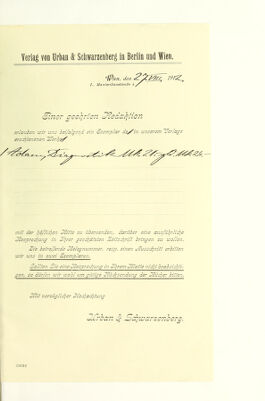 Verlag von Urban & Schwarzenberg in Berlin und Wien.
Wien, den 27/VIII. 1912.
I. Maximilianstraße 4
Einer geehrten Redaktion
erlauben wir uns beifolgend ein Exemplar des in unserem Verlage
erschienenen Werkes
mit der höflichen Bitte zu übersenden, darüber eine ausführliche
Besprechung in Ihrer geschätzten Zeitschrift bringen zu wollen.
Die betreffende Belegnummer, resp. einen Ausschnitt erbitten
wir uns in zwei Exemplaren.
Sollten Sie eine Besprechung in Ihrem Blatte nicht beabsichti-
gen, so dürfen wir wohl um gütige Rücksendung der Bücher bitten.
Mit vorzüglicher Hochachtung
Urban & Schwarzenberg.